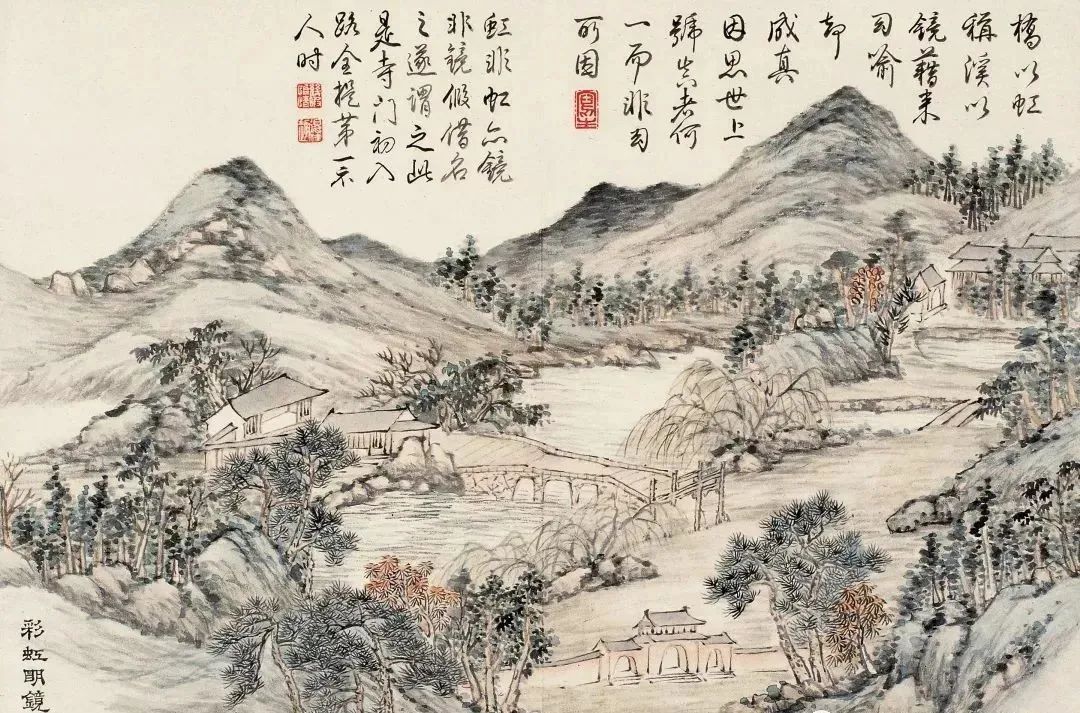 橋以虹
稱溪以
鏡藉来
幻喻
却
成真
因思世上
號真者何
一而非幻
所因
虹非虹亦鏡
非鏡假借名
之遂謂之此
是寺门初入
路全提第一示
人时
彩虹明鏡